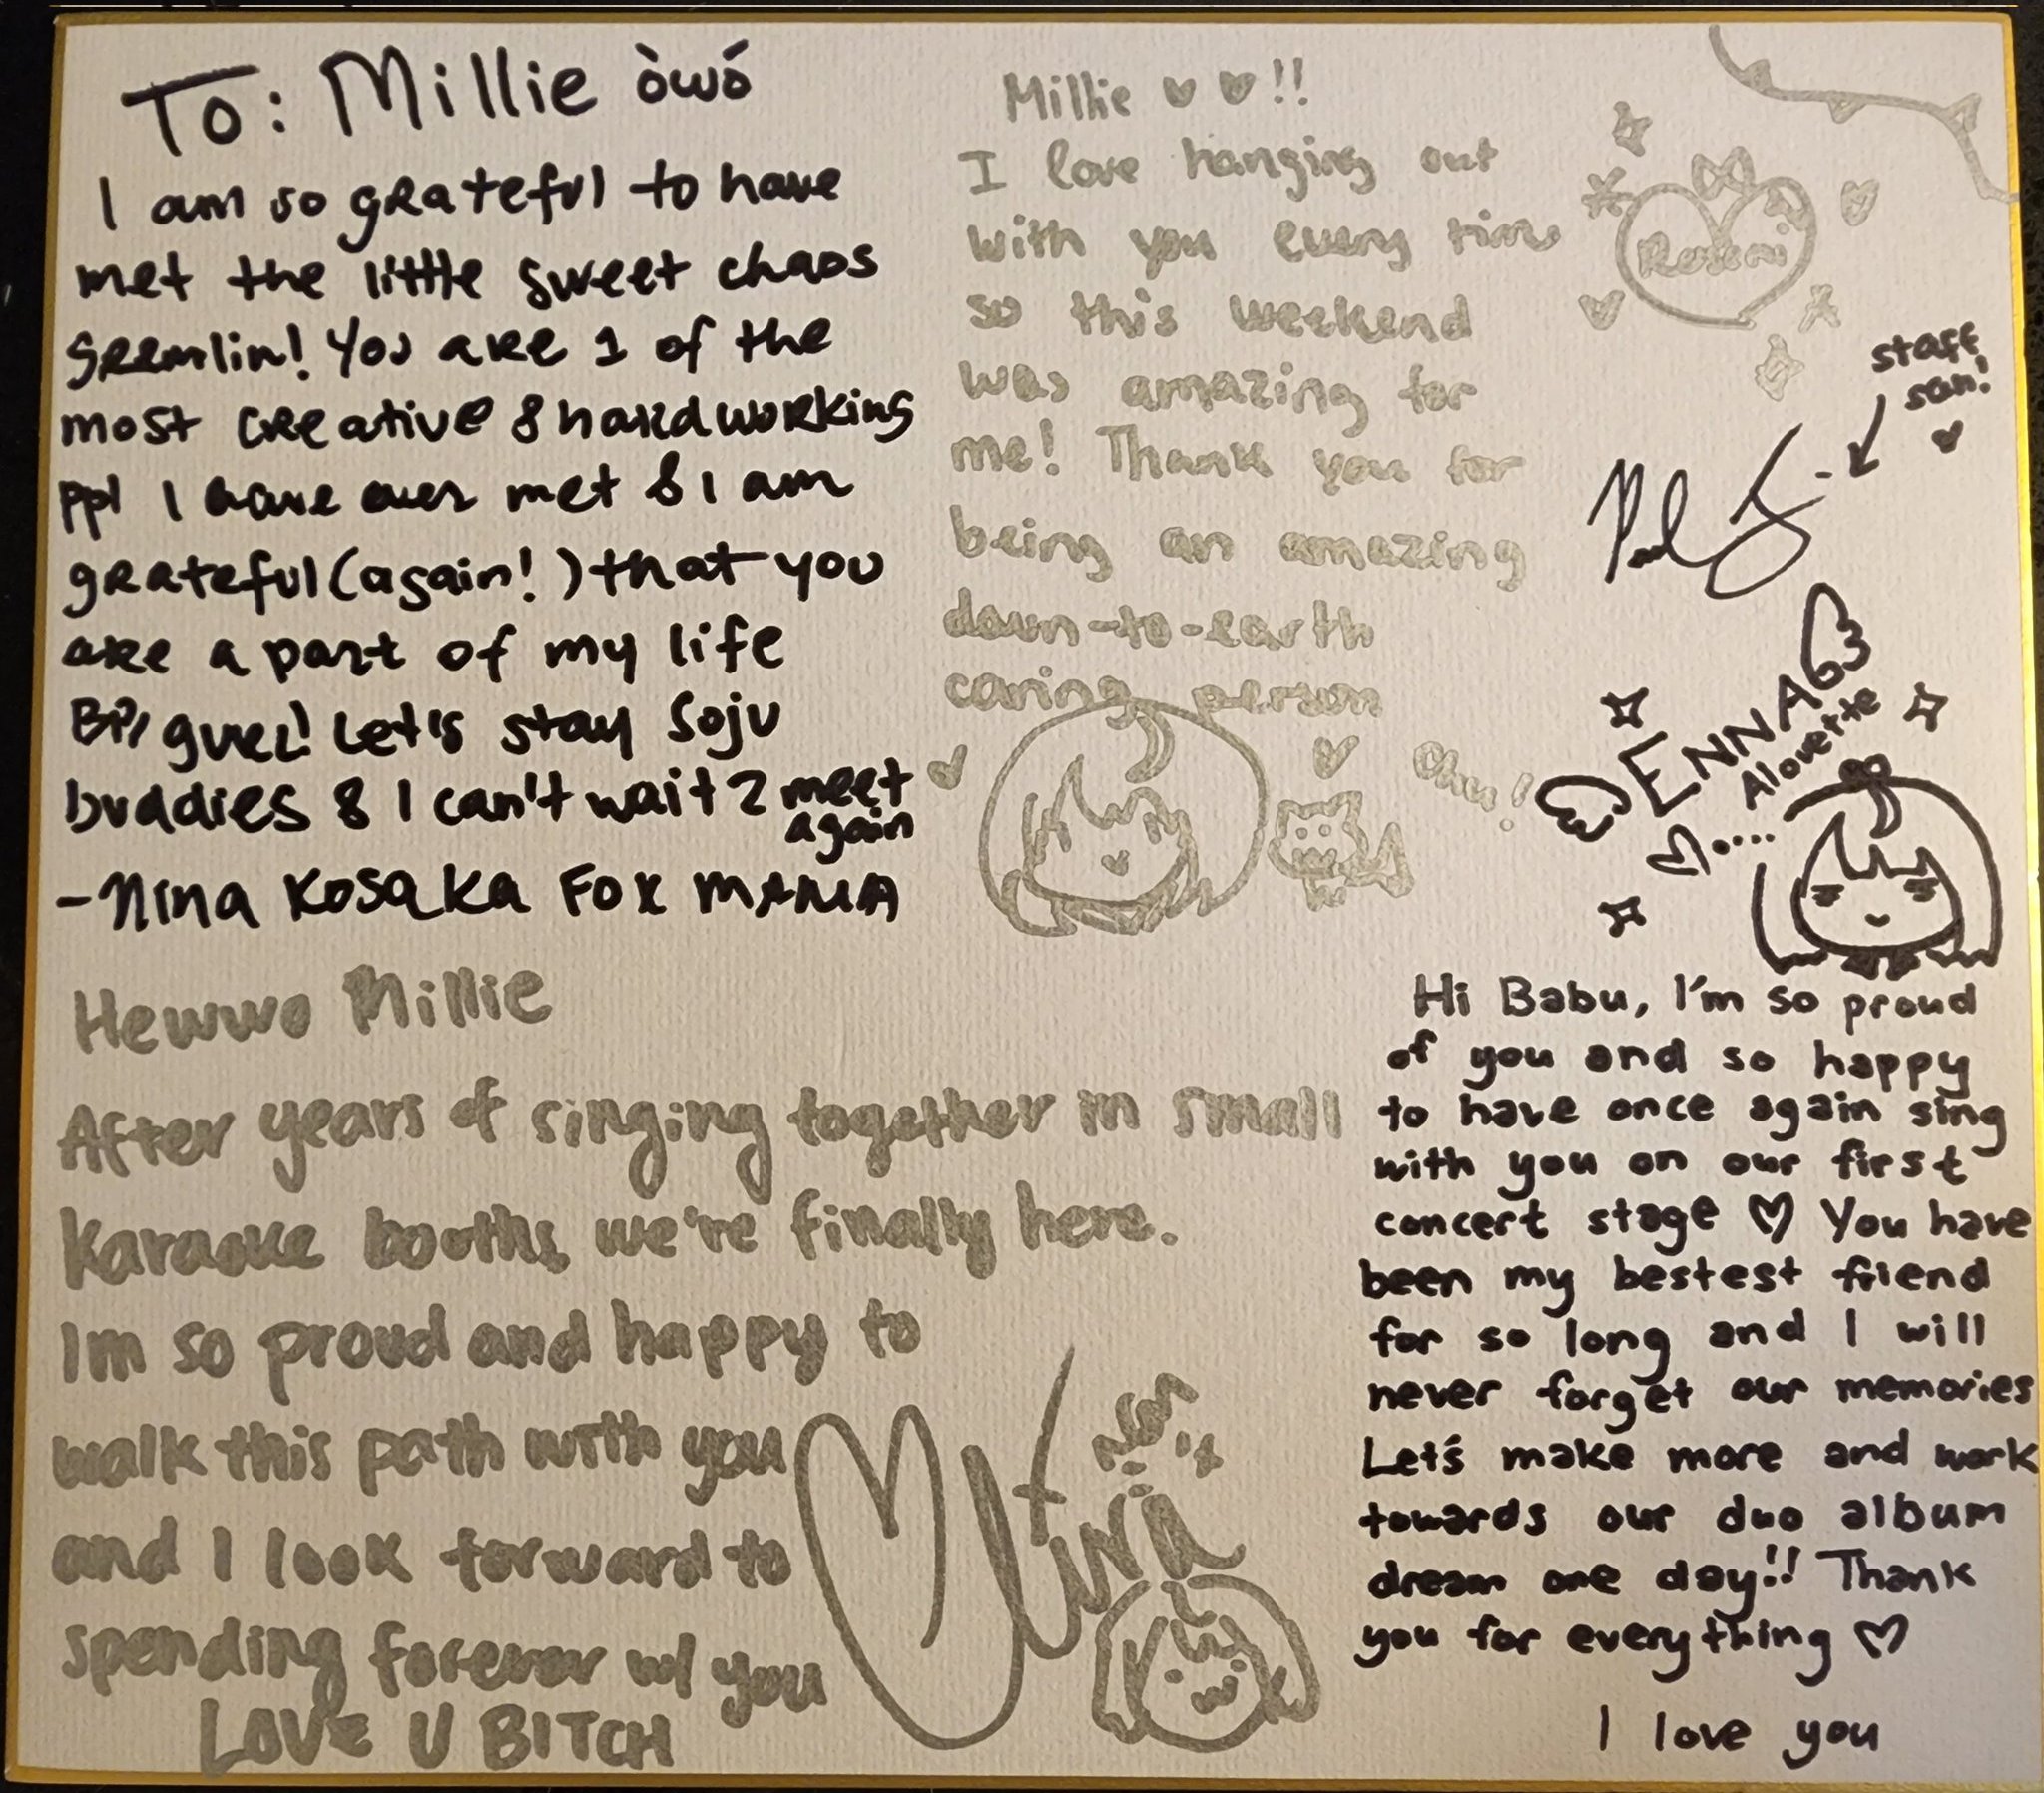 To: Millie òwó
I am so grateful to have
met the little sweet chaos
gremlin! You are 1 of the
most creative & hardworking
ppl I have ever met & I am
grateful (again!) that you
are a part of my life
gurl! Let's stay Soju
buddies & I can't wait 2 meet
again
- Nina Kosaka Fox MAMA
Millie ♡ ♡ !!
I love hanging out
with you every time
so this weekend
was amazing for
me! Thank you for
being an amazing
down-to-earth
caring person
Chu!
Rosemi
staff
san!
♡
ENNA
Alouette
Hi Babu, I'm so proud
of you and so happy
to have once again sing
with you on our first
concert stage ♡ You have
been my bestest friend
for so long and I will
never forget our memories
Let's make more and work
towards our duo album
dream one day!! Thank
you for everything ♡
I love you
Hewwo Millie
After years of singing together in small
Karaoke booths we're finally here.
Im so proud and happy to
walk this path with you
and I look forward to
spending forever w/ you
LOVE U BITCH